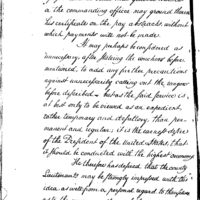 a the commanding officer may ground thereon
his certificate on the pay abstracts without
which payments will not be made
It may perhaps be considered as
unnecessary, after stating the vouchers before
mentioned, to add any further precautions
against unnecessarily calling out the
before described – but as the said service is,
at best only to be viewed as an expedient,
rather temporary and defultory, than per-
manent and regular; it is the earnest desire
of the President of the United States that
it should be conducted with the highest economy
He therefore has desired, that the county
Lieutenants may be strongly impressed with this
idea, as well from a personal regard to themselves